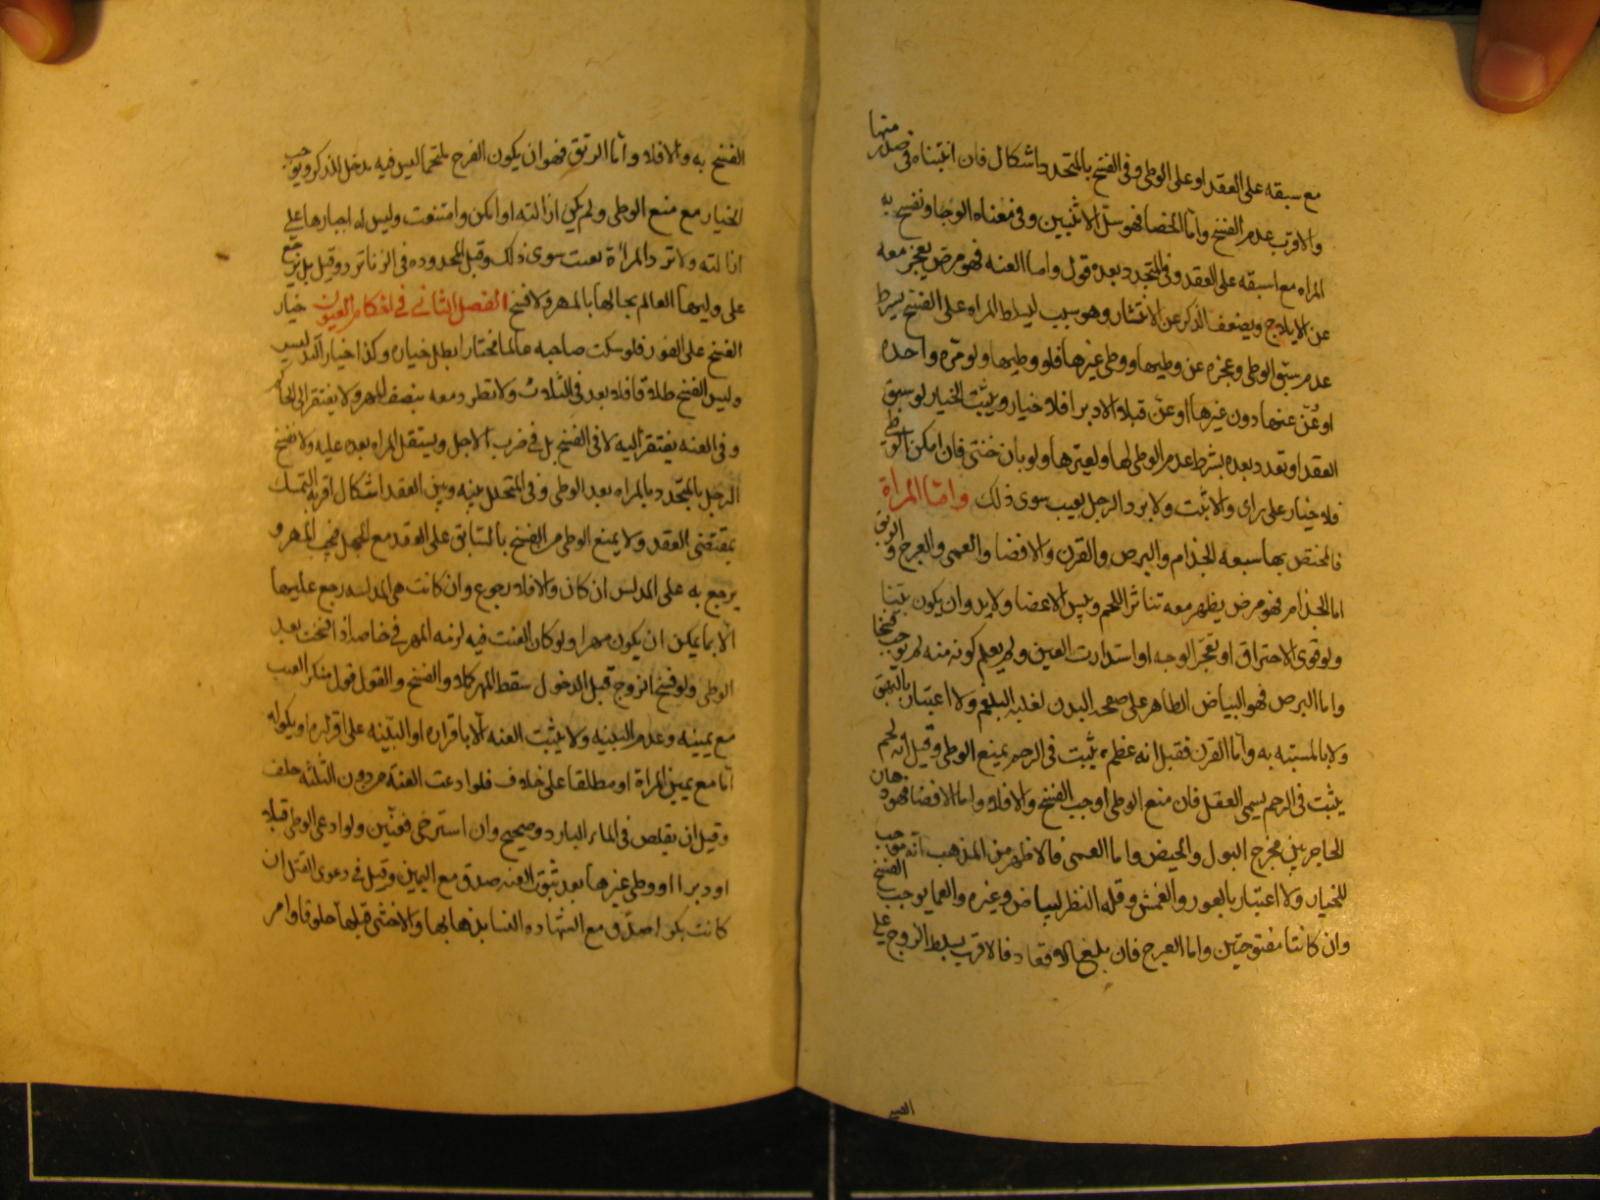 مع سبقه على العقد او على الوطى وفى الفسخ بالمتجدد اشكال فان اثبتناه فى صدر منها
والاقرب عدم الفسخ واما الخصا فهو سل الانثيين وفى معناه الوجا وتفسخ به
المراه مع اسبقه على العقد وفى المتجدد بعده قول واما العنه فهو مرض يعجز معه
عن الايلاج ويضعف الذكر عن الانتشار وهو سبب ليسلط المراه على الفسخ بشرط
عدم سبق الوطى وعجزه عن وطيها ووطى غيرها فلو وطيها ولو مره واحده
او عن عنها دون غيرها او عن قبلا لا دبرا فلا خيار ويثبت الخيار لو سبق
العقد او تجدد بعده بشرط عدم الوطى لها ولغيرها ولو بان خنثى فان امكن الوطى
فلا خيار على راى والا ثبت ولا يرد الرجل بعيب سوى ذلك واما المراة
فالمختص بها سبعه الجذام والبرص والقرن والافضا والعمى والعرج والرتق
اما الجذام فهو مرض يظهر معه تناثر اللحم ويبس الاعضا ولابد وان يكون بينا
ولو قوى الاحتراق او تعجر الوجه او استدارت العين ولم يعلم كونه منه لم يوجب فسخا
واما البرص فهو البياض الظاهر على صفحه البدن لغلبة البلغم ولا اعتبار بالبهق
ولا بالمشتبه به واما القرن فقيل انه عظم يثبت فى الرحم يمنع الوطى وقيل انه لحم
يثبت فى الرحم يسمى العفل فان منع الوطى اوجب الفسخ والا فلا واما الافضا فهو ذهاب
الحاجز بين مخرج البول والحيض واما العمى فالاظهر من المذهب انه موجب
للخيار ولا اعتبار بالعور والعمش وقله النظر لبياض وغيره والعما يوجب الفسخ
وان كانتا مفتوحتين واما العرج فان بلغ الاقعاد فالاقرب يسلط الزوج على
الفسخ
الفسخ به والا فلا واما الرتق فهو ان يكون الفرج ملتحما ليس فيه مدخل للذكر ويوجب
الخيار مع منع الوطى ولم يمكن ازالته او امكن وامتنعت وليس له اجبارها على
ازالته ولا ترد المراة بعيب سوى ذلك وقيل المحدوده فى الزنا ترد وقيل بل يرجع
على وليها العالم بحالها بالمهر ولا فسخ الفصل الثانى فى احكام العيوب خيار
الفسخ على الفور فلو سكت صاحبه عالما مختارا بطل خياره وكذا خيار التدليس
وليس الفسخ طلاقا فلا يعد فى الثلاث ولا يطرد معه تنصف المهر ولا يفتقر الى الحاكم
وفى العنه يفتقر اليه لا فى الفسخ بل فى ضرب الاجل ويستقل المراه بعده عليه ولا تفسخ
الرجل بالمتجدد بالمراه بعد الوطى وفى المتخلل بينه وبين العقد اشكال اقربه التمسك
بمقتضى العقد ولا يمنع الوطى من الفسخ بالسابق على العقد مع الجهل فيجب المهر و
يرجع به على المدلس ان كان والا فلا رجوع وان كانت هى المدلسه رجع عليها
الا بما يمكن ان يكون مهرا ولو كان العنت فيه لزمه المهر فى خاصه اذا فسخت بعد
الوطى ولو فسخ الزوج قبل الدخول سقط المهر كملا والفسخ والقول قول منكر العيب
مع يمينه وعدم البينه ولا يثبت العنه الا باقراره او البينه على اقراره او نكوله
اما مع يمين المراة او مطلقا على خلاف فلو ادعت العنة من دون الثلثه حلف
وقيل ان يقلص فى الماء البارد فصحيح وان استرخى فعنين ولو ادعى الوطى قبلا
او دبرا او وطى غيرها بعد ثبوت العنه صدق مع اليمين وقيل فى دعوى القبل ان
كانت بكرا صدق مع الشهاده النسا بذهابها والا حشى قبلها خلوقا وامر